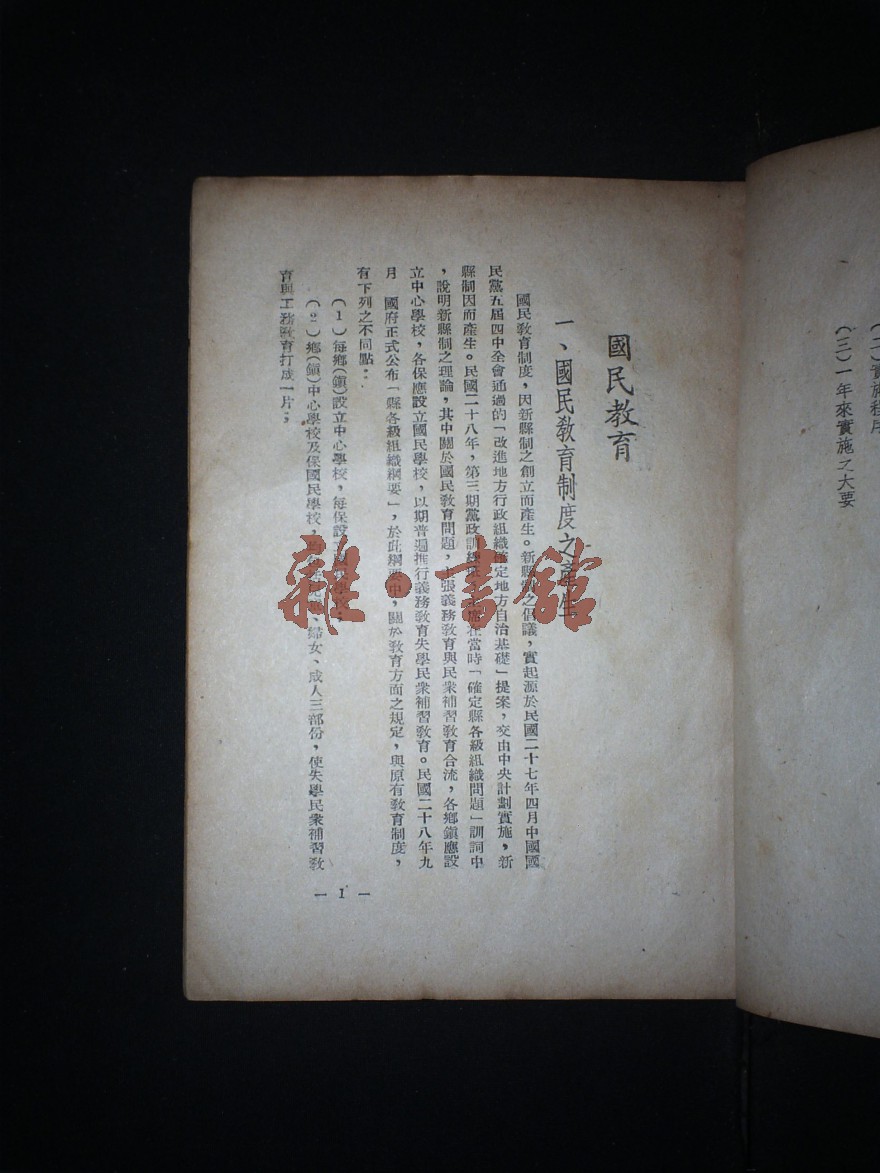 (二)實施程序
(三)一年來實施之大要
國民教育
一、國民教育制度之產生
國民教育制度，因新縣制之創立而產生。新縣制之倡議，實起源於民國二十七年四月中國國
民黨五屆四中全會通過的「改進地方行政組織確定地方自治基礎」提案，交由中央計劃實施，新
縣制因而產生。民國二十八年，第三期黨政訓練班，在當時「確定縣各級組織問題」訓詞中
，說明新縣制之理論，其中關於國民教育問題，主張義務教育與民衆補習教育合流，各鄉鎭應設
立中心學校，各保應設立國民學校，以期普遍推行義務教育失學民衆補習教育。民國二十八年九
月　國府正式公布「縣各級組織綱要」，於此綱要中，關於教育方面之規定，與原有教育制度，
有下列之不同點：
(1)每鄉(鎭)設立中心學校，每保設立國民學校；
(2)鄉(鎭)中心學校及保國民學校，、婦女、成人三部份，使失學民衆補習教
育與工務教育打成一片；
— 1 —
雜·書館